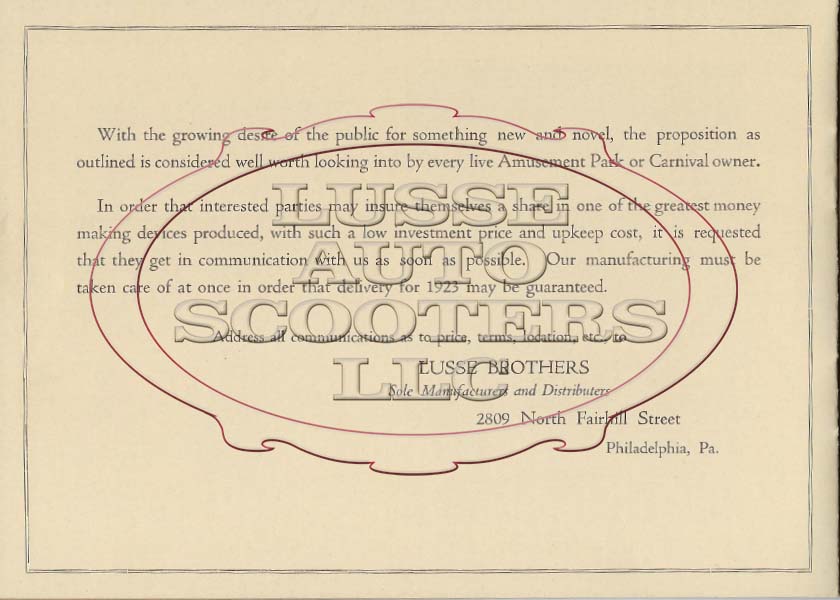 With the growing desire of the public for something new and novel, the proposition as
outlined is considered well worth looking into by every live Amusement Park or Carnival owner.
In order that interested parties may insure themselves a share in one of the greatest money
making devices produced, with such a low investment price and upkeep cost, it is requested
that they get in communication with us as soon as possible. Our manufacturing must be
taken care of at once in order that delivery for 1923 may be guaranteed.
Address all communications as to price, terms, location, etc., to
LUSSE BROTHERS
Sole Manufacturers and Distributers
2809 North Fairhill Street
Philadelphia, Pa.
LUSSE
AUTO
SCOOTERS
LLC